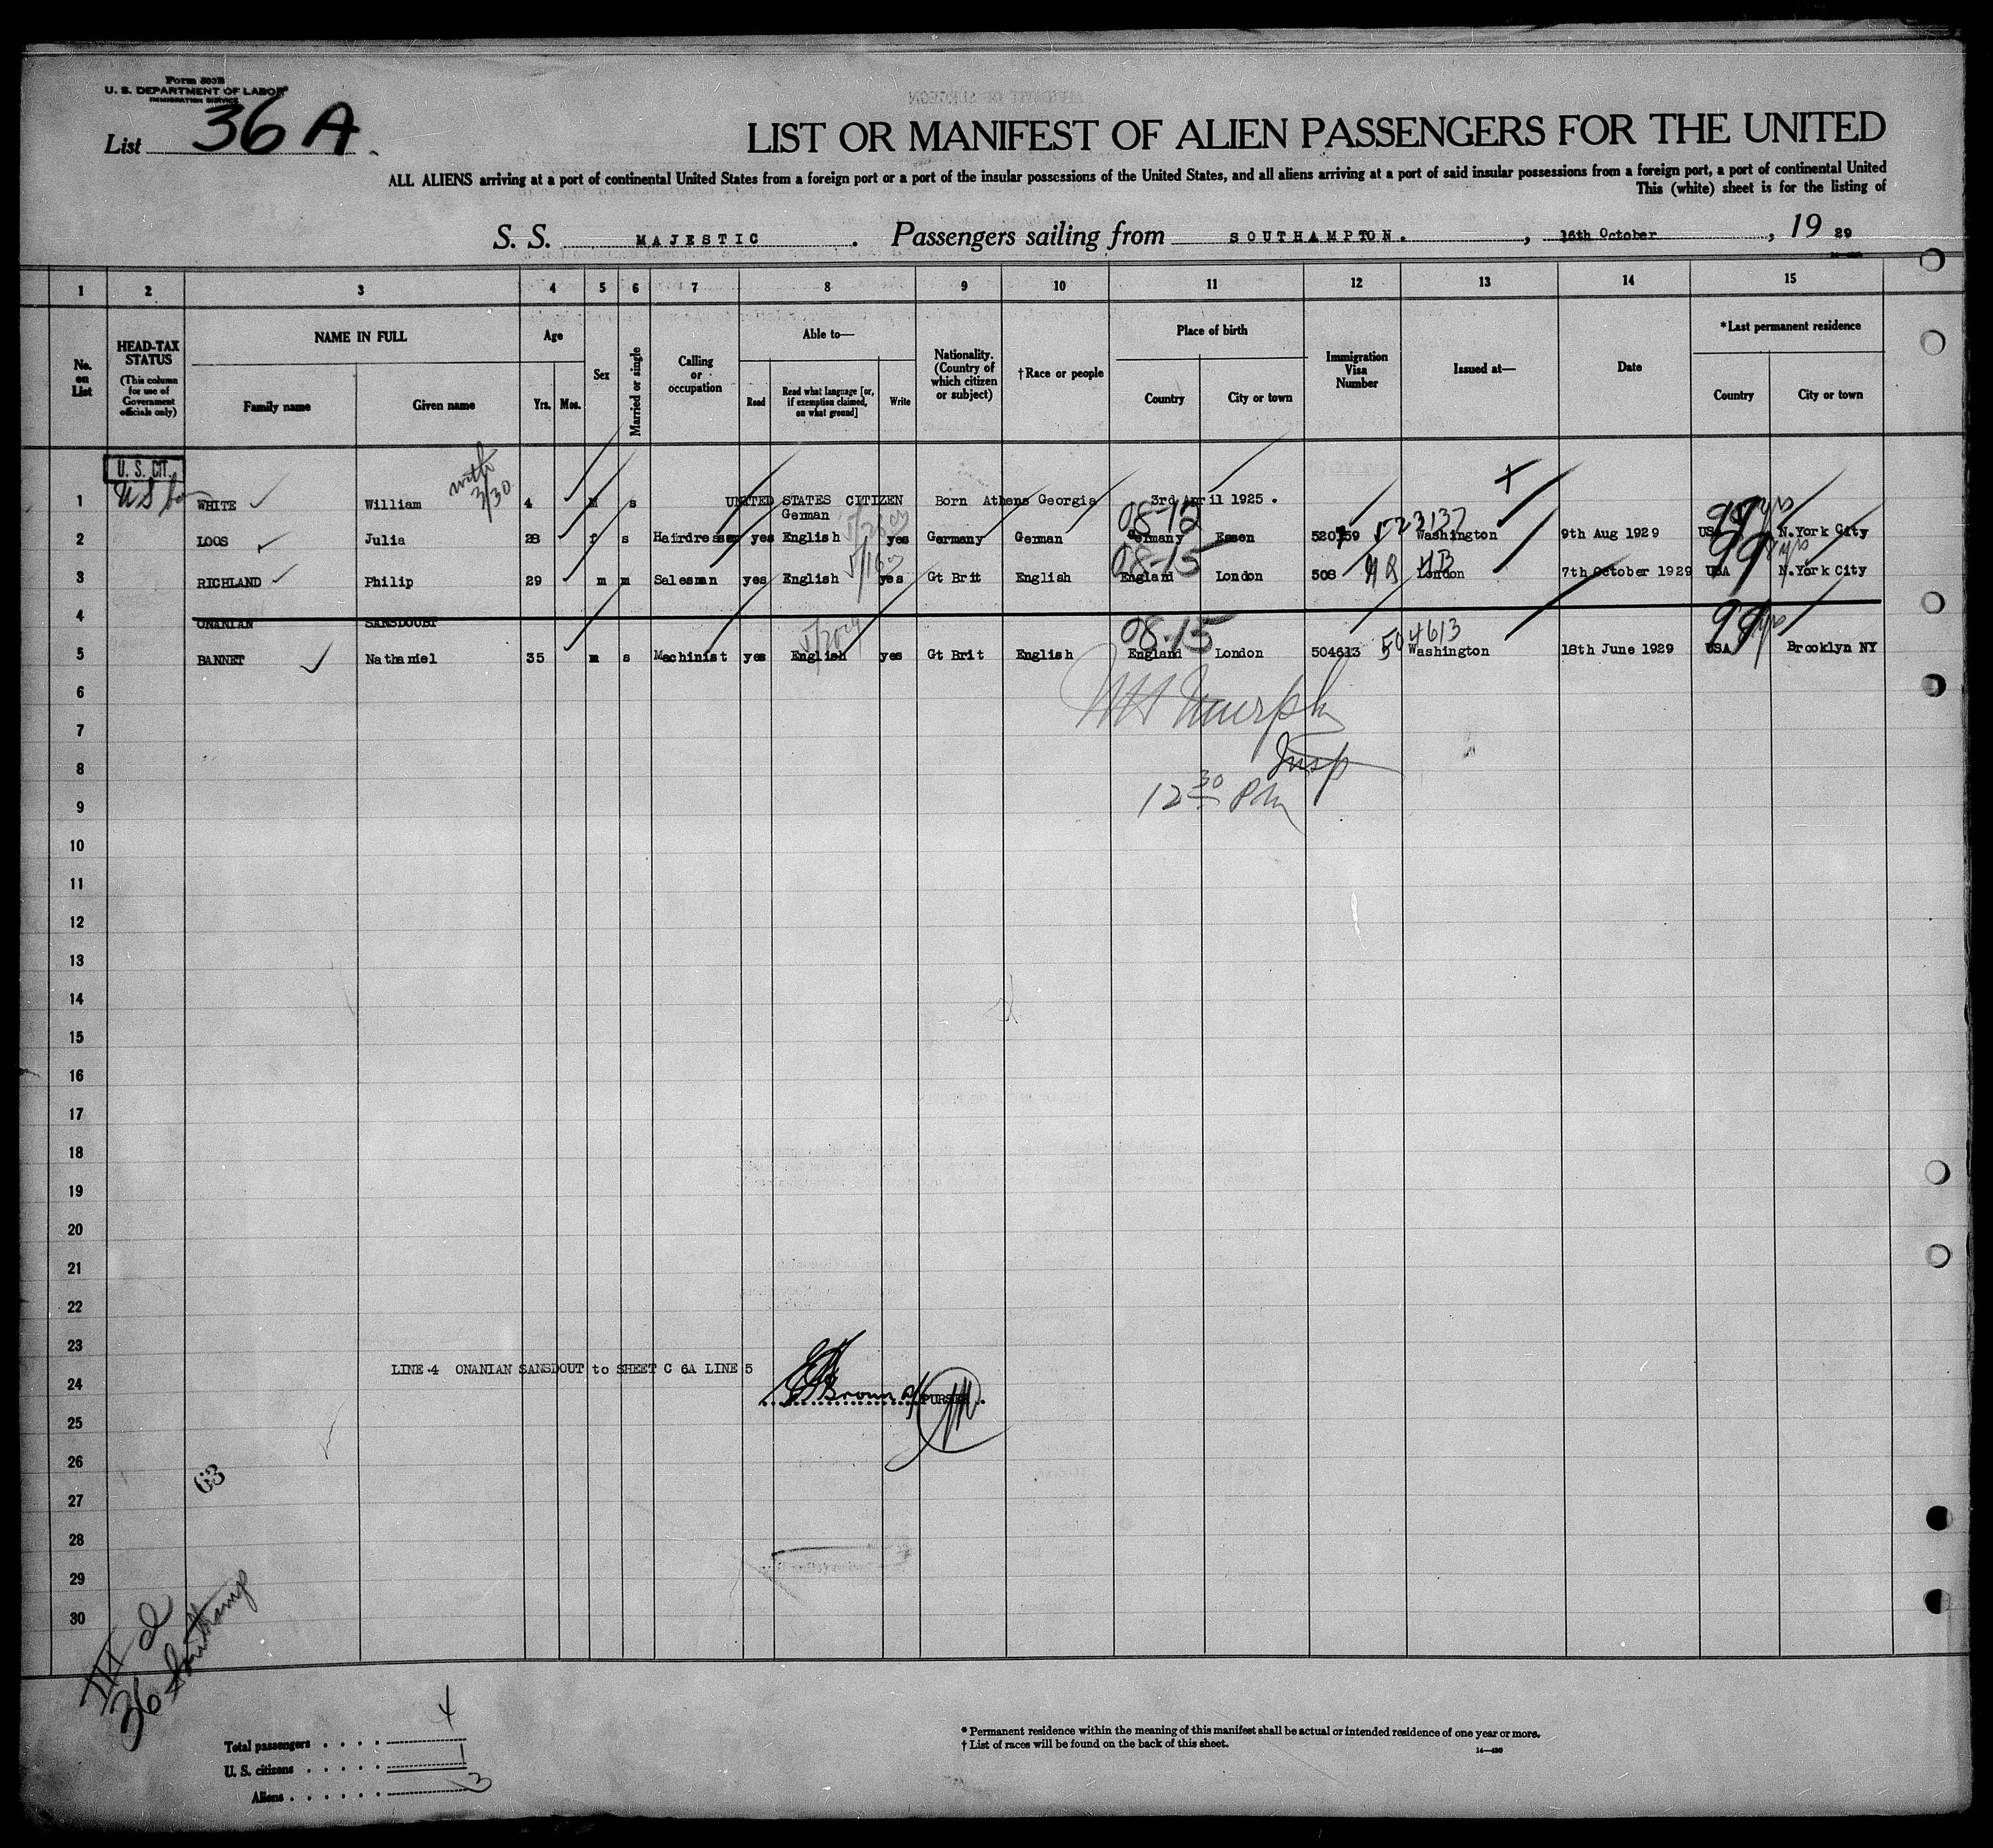 Form 500B
U. S. DEPARTMENT OF LABOR
IMMIGRATION SERVICE
List 36 A
LIST OR MANIFEST OF ALIEN PASSENGERS FOR THE UNITED
ALL ALIENS arriving at a port of continental United States from a foreign port or a port of the insular possessions of the United States, and all aliens arriving at a port of said insular possessions from a foreign port, a port of continental United
This (white) sheet is for the listing of
S. S. MAJESTIC. Passengers sailing from SOUTHAMPTON., 16th October, 19 29
1 2 3 4 5 6 7 8 9 10 11 12 13 14 15
No. on List
HEAD-TAX STATUS
(This column for use of Government officials only)
NAME IN FULL
Family name
Given name
Age
Yrs.
Mos.
Sex
Married or single
Calling or occupation
Able to—
Read
Read what language [or, if exemption claimed, on what ground]
Write
Nationality. (Country of which citizen or subject)
†Race or people
Place of birth
Country
City or town
Immigration Visa Number
Issued at—
Date
*Last permanent residence
Country
City or town
U. S. CIT.
with 3/30
1 US WHITE William 4 M s UNITED STATES CITIZEN Born Athens Georgia 3rd April 1925.
German
08-12 523137 99
2 LOOS Julia 28 f s Hairdresser yes English yes Germany German Germany Essen 520759 Washington 9th Aug 1929 USA N.York City
08-15 99
3 RICHLAND Philip 29 m m Salesman yes English yes Gt Brit English England London 508 London 7th October 1929 USA N.York City
4 ONANIAN SANSDOUBT
08-15 504613 99
5 BANNET Nathaniel 35 m s Machinist yes English yes Gt Brit English England London 504613 Washington 18th June 1929 USA Brooklyn NY
6
Murphy
7
Insp
8
12 30 PM
9
10
11
12
13
14
15
16
17
18
19
20
21
22
23
LINE 4 ONANIAN SANSDOUT to SHEET C 6A LINE 5
24
Brown PURSER.
25
26
63
27
28
29
30
III d
36 Southamp
Total passengers . . . . 4
U. S. citizens . . . . . 1
Aliens . . . . . . 3
* Permanent residence within the meaning of this manifest shall be actual or intended residence of one year or more.
† List of races will be found on the back of this sheet.
14—430